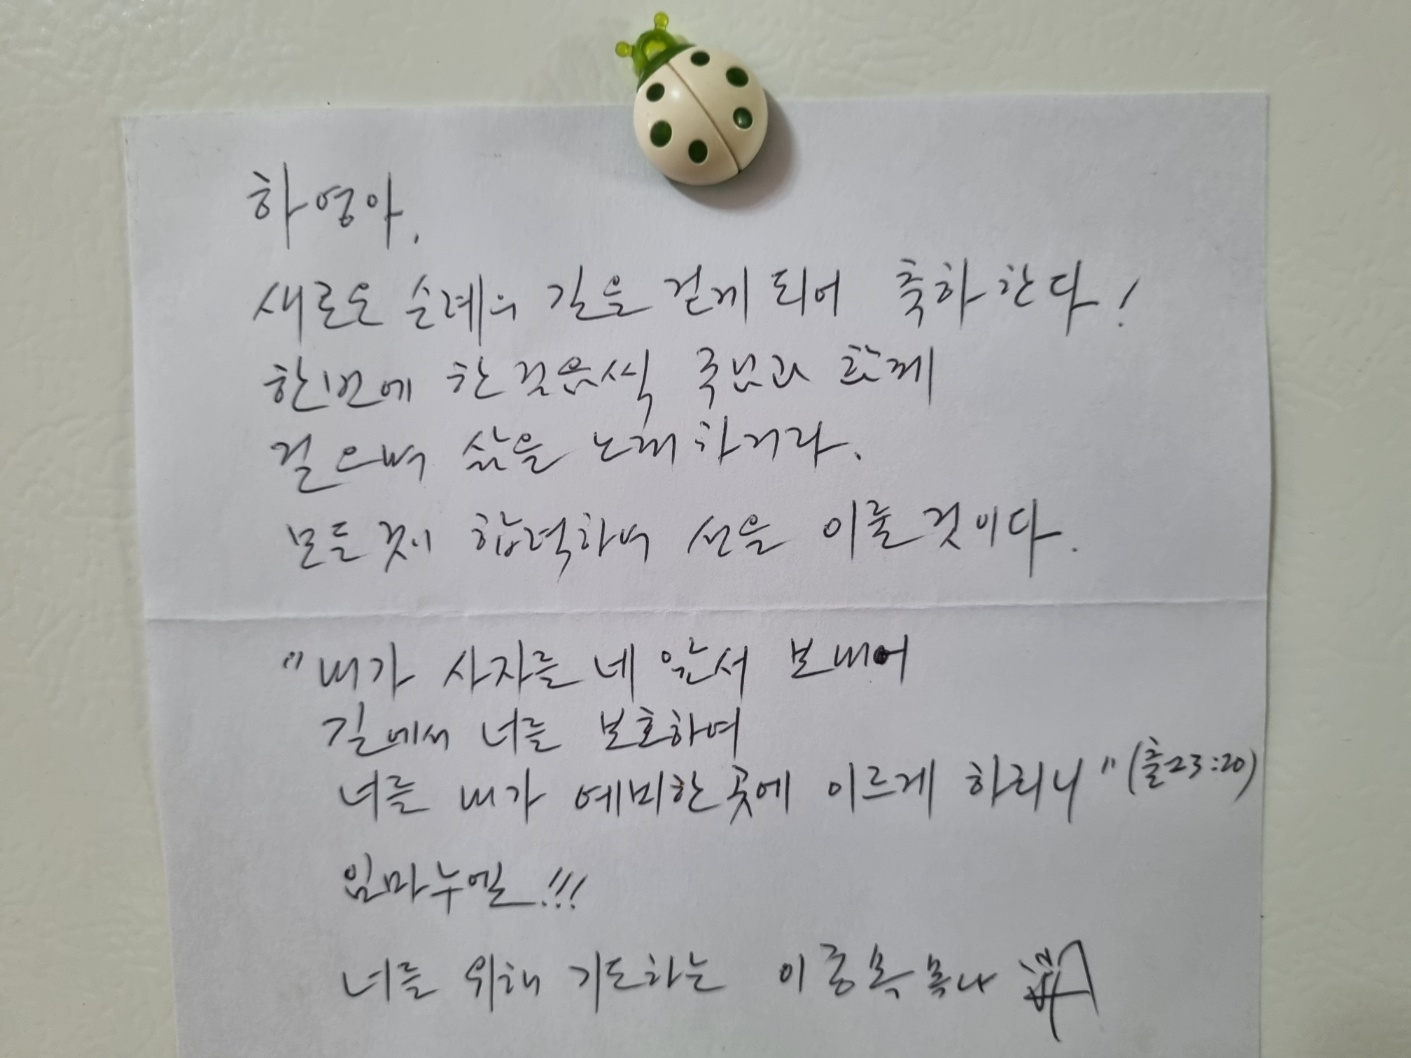 하영아,
새로운 순례의 길을 걷게 되어 축하한다!
한번에 한걸음씩 주님과 함께
걸으며 삶을 노래하거라.
모든것이 합력하여 선을 이룰것이다.
"내가 사자를 네 앞서 보내어
길에서 너를 보호하여
너를 내가 예비한 곳에 이르게 하리니" (출23:20)
임마누엘!!!
너를 위해 기도하는